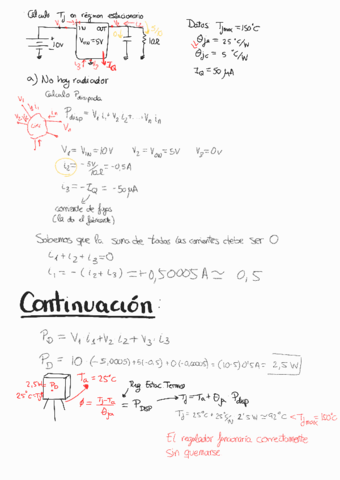 Calculo Tj en régimen estacionario
Datos Tjmax = 150°C
θja = 25 °C/W
θjc = 5 °C/W
IQ = 50 μA
10V
IN OUT
VREG = 5V
10Ω
IQ
a) No hay radiador
Calculo Pdisipada
Pdisp = V1 i1 + V2 i2 = ... Vn in
V1 = VIN = 10V V2 = VREG = 5V V3 = 0V
i2 = -5V/10Ω = -0,5A
i3 = -IQ = -50 μA
corriente de fugas
(la da el fabricante)
Sabemos que la suma de todas las corrientes debe ser 0
i1 + i2 + i3 = 0
i1 = -(i2 + i3) = +0,50005A ≃ 0,5
Continuación:
PD = V1 i1 + V2 i2 + V3 i3
PD = 10 (-5,0005) + 5(-0.5) + 0(-0,00005) = (10-5) 0'5A = 2,5 W
2,5W
25°C Tj
PD
Ta = 25°C
Reg Estac Termico
ϕ = (Tj - Ta)/θja = PDISP
Tj = Ta + θja PDISP
Tj = 25°C + 25°C/W 2'5W ≃ 92°C < Tjmax = 150°C
El regulador funcionaria correctamente
sin quemarse